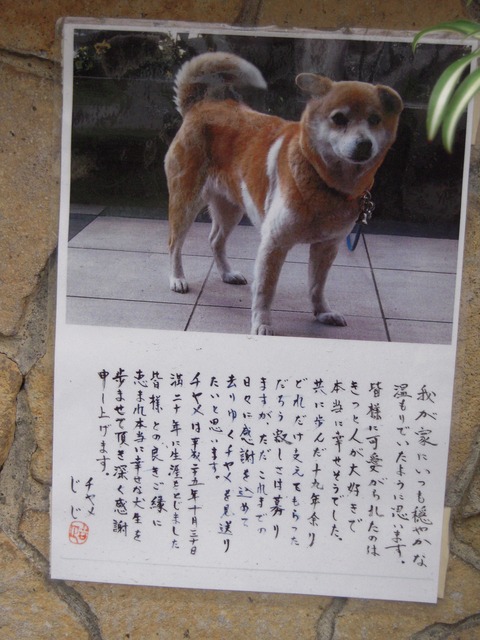 我が家にいつも穏やかな
温もりでいたように思います。
皆様に可愛がられたのは
きっと人が大好きで
本当に幸せそうでした。
共に歩んだ十九年余り
どれだけ支えてもらった
だろう寂しさは募り
ますが、ただこれまでの
日々に感謝を込めて
去りゆくチャメを見送り
たいと思います。
チャメは平成二十五年十月三十日
満二十年に生涯をとじました
皆様との良きご縁に
恵まれ本当に幸せな犬生を
歩ませて頂き深く感謝
申し上げます。
チャメ
じじ